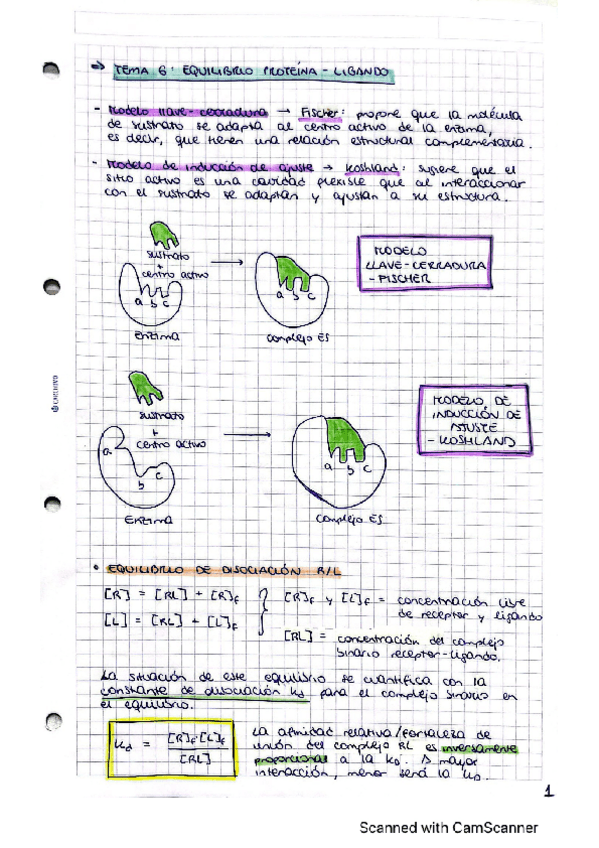 → TEMA 6: EQUILIBRIO PROTEÍNA - LIGANDO
- Modelo llave-cerradura → Fischer: propone que la molécula
de sustrato se adapta al centro activo de la enzima,
es decir, que tienen una relación estructural complementaria.
- Modelo de inducción de ajuste → Koshland: sugiere que el
sitio activo es una cavidad flexible que al interaccionar
con el sustrato se adaptan y ajustan a su estructura.
sustrato
+
centro activo
a b c
enzima
→
a b c
complejo ES
MODELO
LLAVE-CERRADURA
- FISCHER
sustrato
+
centro activo
a
b
c
ENZIMA
→
a b c
complejo ES
MODELO DE
INDUCCIÓN DE
AJUSTE
- KOSHLAND
• EQUILIBRIO DE DISOCIACIÓN R/L
[R] = [RL] + [R]f
[L] = [RL] + [L]f
[R]f y [L]f = concentración libre
de receptor y ligando
[RL] = concentración del complejo
binario receptor-ligando.
La situación de este equilibrio se cuantifica con la
constante de disociación Kd para el complejo binario en
el equilibrio.
Kd = [R]f[L]f
[RL]
La afinidad relativa/fortaleza de
unión del complejo RL es inversamente
proporcional a la KD. A mayor
interacción, menor será la KD.
1
Scanned with CamScanner